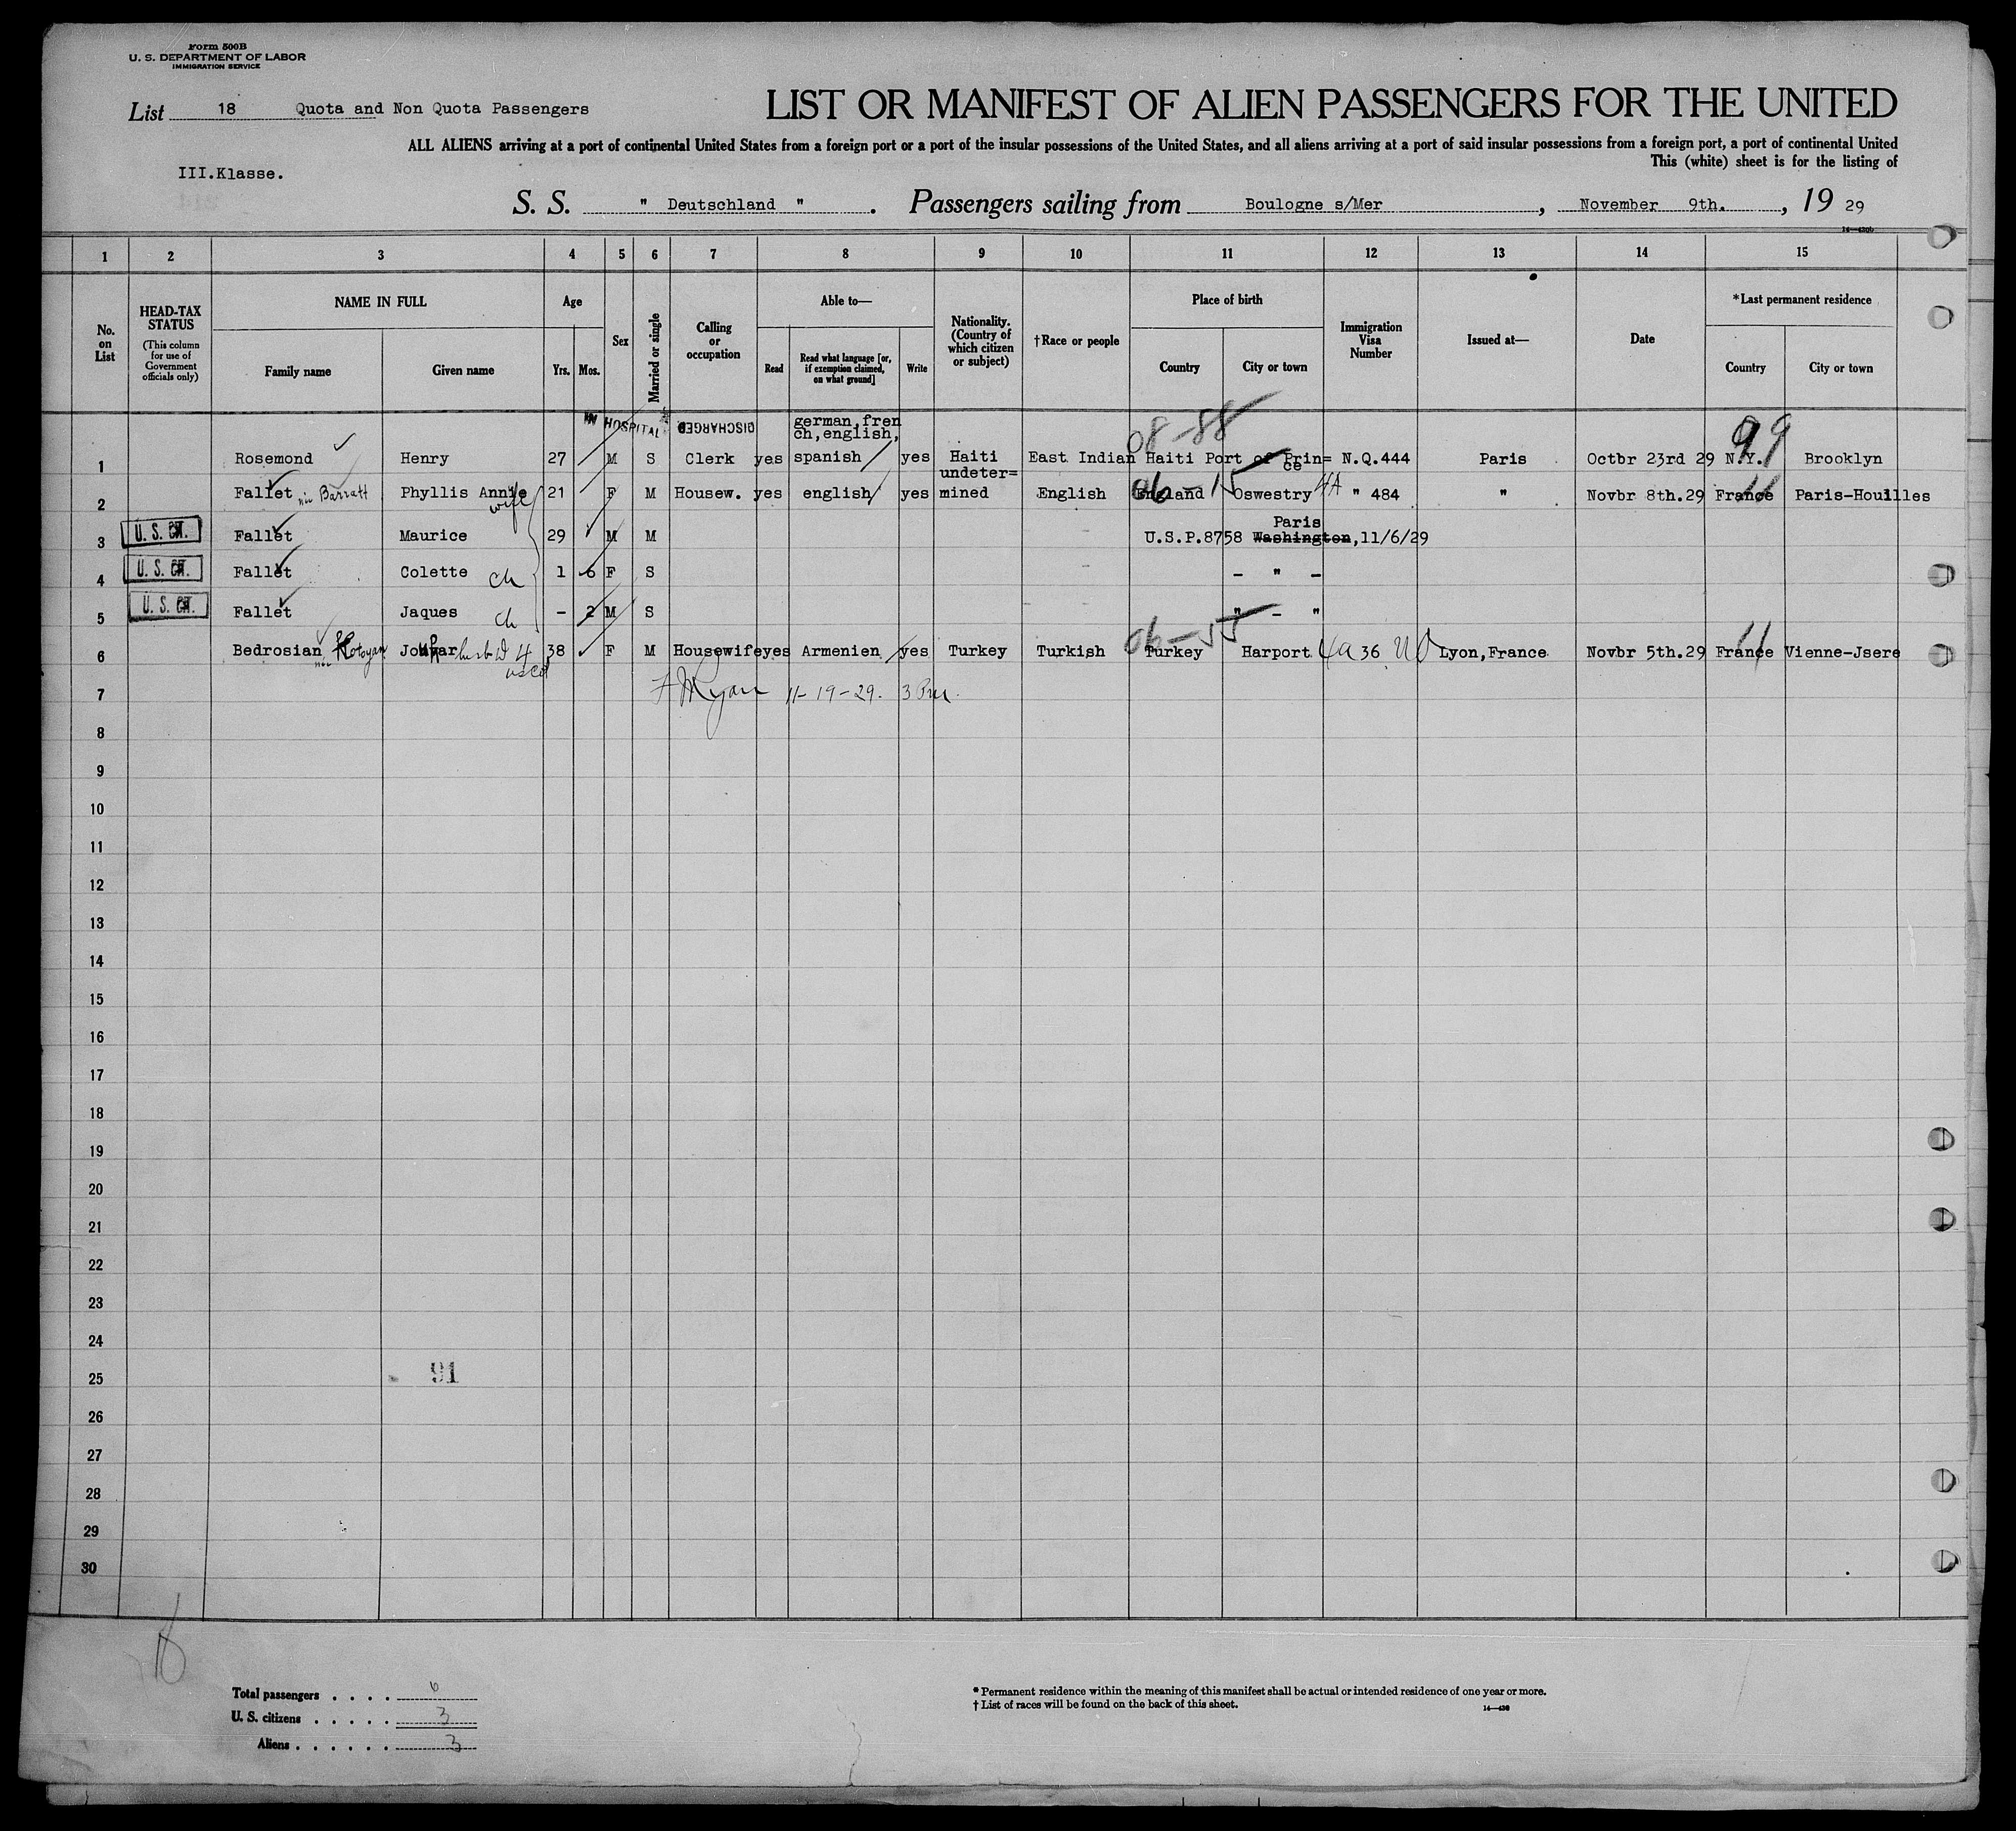 Form 500B
U. S. DEPARTMENT OF LABOR
IMMIGRATION SERVICE
List 18 Quota and Non Quota Passengers
LIST OR MANIFEST OF ALIEN PASSENGERS FOR THE UNITED
ALL ALIENS arriving at a port of continental United States from a foreign port or a port of the insular possessions of the United States, and all aliens arriving at a port of said insular possessions from a foreign port, a port of continental United
This (white) sheet is for the listing of
III.Klasse.
S. S. " Deutschland " . Passengers sailing from Boulogne s/Mer , November 9th. , 19 29
14—430b
1 2 3 4 5 6 7 8 9 10 11 12 13 14 15
No. on List
HEAD-TAX STATUS
(This column for use of Government officials only)
NAME IN FULL
Family name Given name
Age
Yrs. Mos.
Sex
Married or single
Calling or occupation
Able to—
Read
Read what language [or, if exemption claimed, on what ground]
Write
Nationality. (Country of which citizen or subject)
†Race or people
Place of birth
Country City or town
Immigration Visa Number
Issued at—
Date
*Last permanent residence
Country City or town
IN HOSPITAL DISCHARGED german,fren 08-88 99
ch,english,
1 Rosemond Henry 27 M S Clerk yes spanish yes Haiti East Indian Haiti Port of Prin= N.Q.444 Paris Octbr 23rd 29 N.Y. Brooklyn
ce
undeter=
2 Fallet née Barratt Phyllis Annie wife 21 F M Housew. yes english yes mined English England 06-15 Oswestry 4A " 484 " Novbr 8th.29 France 11 Paris-Houilles
Paris
3 U. S. CIT. Fallet Maurice 29 M M U.S.P.8758 Washington,11/6/29
4 U. S. CIT. Fallet Colette ch 1 6 F S - " -
5 U. S. CIT. Fallet Jaques ch - 2 M S " - "
6 Bedrosian née Kotoyan 38 F M Housewife yes Armenien yes Turkey Turkish 06-55 Turkey Harport 4a 36 Lyon,France Novbr 5th.29 France 11 Vienne-Jsere
7 11-19-29. 3 Pm.
8
9
10
11
12
13
14
15
16
17
18
19
20
21
22
23
24
25 91
26
27
28
29
30
Total passengers . . . . 6
U. S. citizens . . . . . 3
Aliens . . . . . . 3
* Permanent residence within the meaning of this manifest shall be actual or intended residence of one year or more.
† List of races will be found on the back of this sheet.
14—430